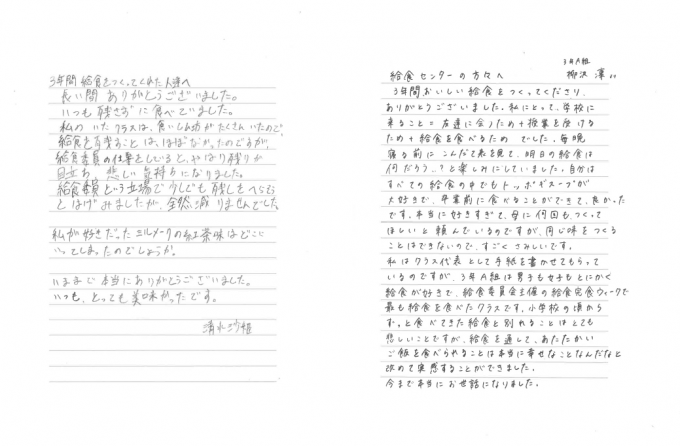 3年間 給食をつくってくれた人達へ
長い間 ありがとうございました。
いつも 残さずに 食べていました。
私の いた クラスは、食いしん坊が たくさん いたので、
給食を残すことは、ほぼなかったのですが、
給食委員の仕事をしていると、やはり残りが
目立ち、悲しい 気持ちになりました。
給食委員という立場で少しでも 残しをへらそう
とはげみましたが、全然減りませんでした。
私が好きだった ミルメークの紅茶味はどこに
いってしまったのでしょうか。
いままで 本当にありがとうございました。
いつも、とっても 美味しかったです。
清水
3年A組
給食センターの方々へ
柳沢
3年間おいしい給食をつくってくださり、
ありがとうございました。私にとって、学校に
来ること=友達に会うため+授業を受ける
ため+給食を食べるため でした。毎晩
寝る前に こんだて表を見て、明日の給食は
何だろう…?と楽しみにしていました。自分は
すべての給食の中でもトッポギスープが
大好きで、卒業前に食べることができて、良かった
です。本当に好きすぎて、母に何回もつくって
ほしいと頼んでいるのですが、同じ味をつくる
ことはできないので、すごくさみしいです。
私はクラス代表として手紙を書かせてもらって
いるのですが、3年A組は男子も女子もとにかく
給食が好きで、給食委員会主催の給食完食ウィークで
最も給食を食べたクラスです。小学校の頃から
ずっと食べてきた給食と別れることはとても
悲しいことですが、給食を通して、あたたかい
ご飯を食べられることは本当に幸せなことなんだなと
改めて実感することができました。
今まで本当にお世話になりました。